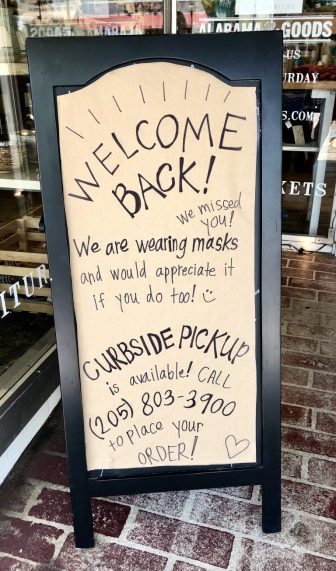 ALABAMA GOODS
US
URDAY
S.COM
KETS
ITUR
WELCOME
BACK!
We missed
you!
We are wearing masks
and would appreciate it
if you do too!
CURBSIDE PICKUP
is available! CALL
(205) 803-3900
to place your
ORDER!